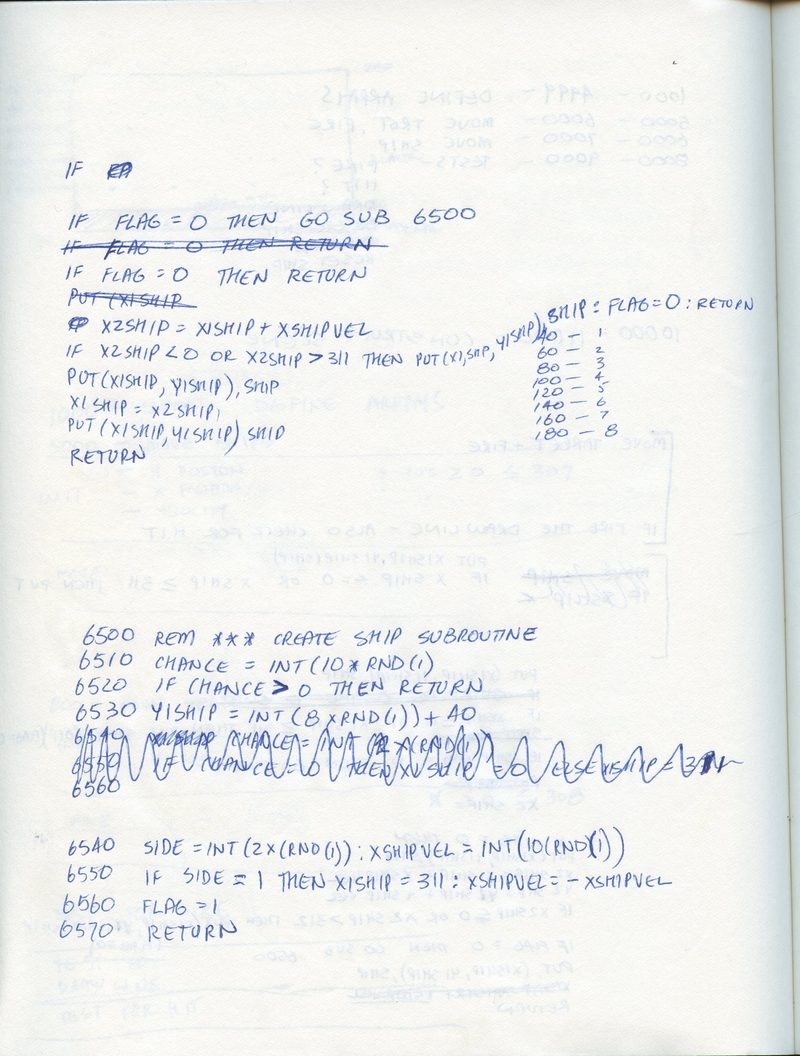 IF
IF FLAG = 0 THEN GO SUB 6500
IF FLAG = 0 THEN RETURN
IF FLAG = 0 THEN RETURN
PUT (X1SHIP
X2SHIP = X1SHIP + XSHIPVEL
IF X2SHIP < 0 OR X2SHIP > 311 THEN PUT (X1,SHIP, Y1SHIP), SHIP : FLAG = 0 : RETURN
PUT (X1SHIP, Y1SHIP), SHIP
X1SHIP = X2SHIP,
PUT (X1SHIP, Y1SHIP) SHIP
RETURN
40 — 1
60 — 2
80 — 3
100 — 4
120 — 5
140 — 6
160 — 7
180 — 8
6500 REM *** CREATE SHIP SUBROUTINE
6510 CHANCE = INT (10 * RND (1)
6520 IF CHANCE > 0 THEN RETURN
6530 Y1SHIP = INT (8 X RND (1)) + 40
6540 CHANCE = INT (2 X (RND (1))
6550 IF CHANCE = 0 THEN X1SHIP = 0 ELSE X1SHIP = 311
6560
6540 SIDE = INT (2 X (RND (1)) : XSHIPVEL = INT (10 (RND (1))
6550 IF SIDE = 1 THEN X1SHIP = 311 : XSHIPVEL = - XSHIPVEL
6560 FLAG = 1
6570 RETURN